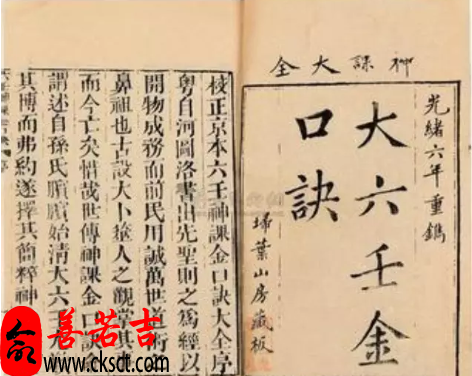 神課大全
光緒六年重鐫
大六壬金
口訣
掃葉山房藏板
校正京本六壬神課金口訣大全序
粵自河圖洛書出先聖則之為經以
開物成務而前民用誠萬世道術
鼻祖也古設大卜筮人之觀掌其
而今亡矣惜哉世傳神課金口訣
謂述自孫氏臏臏始清大六壬
其博而弗約遂擇其簡粹神
命
善若吉
www.cksdt.com